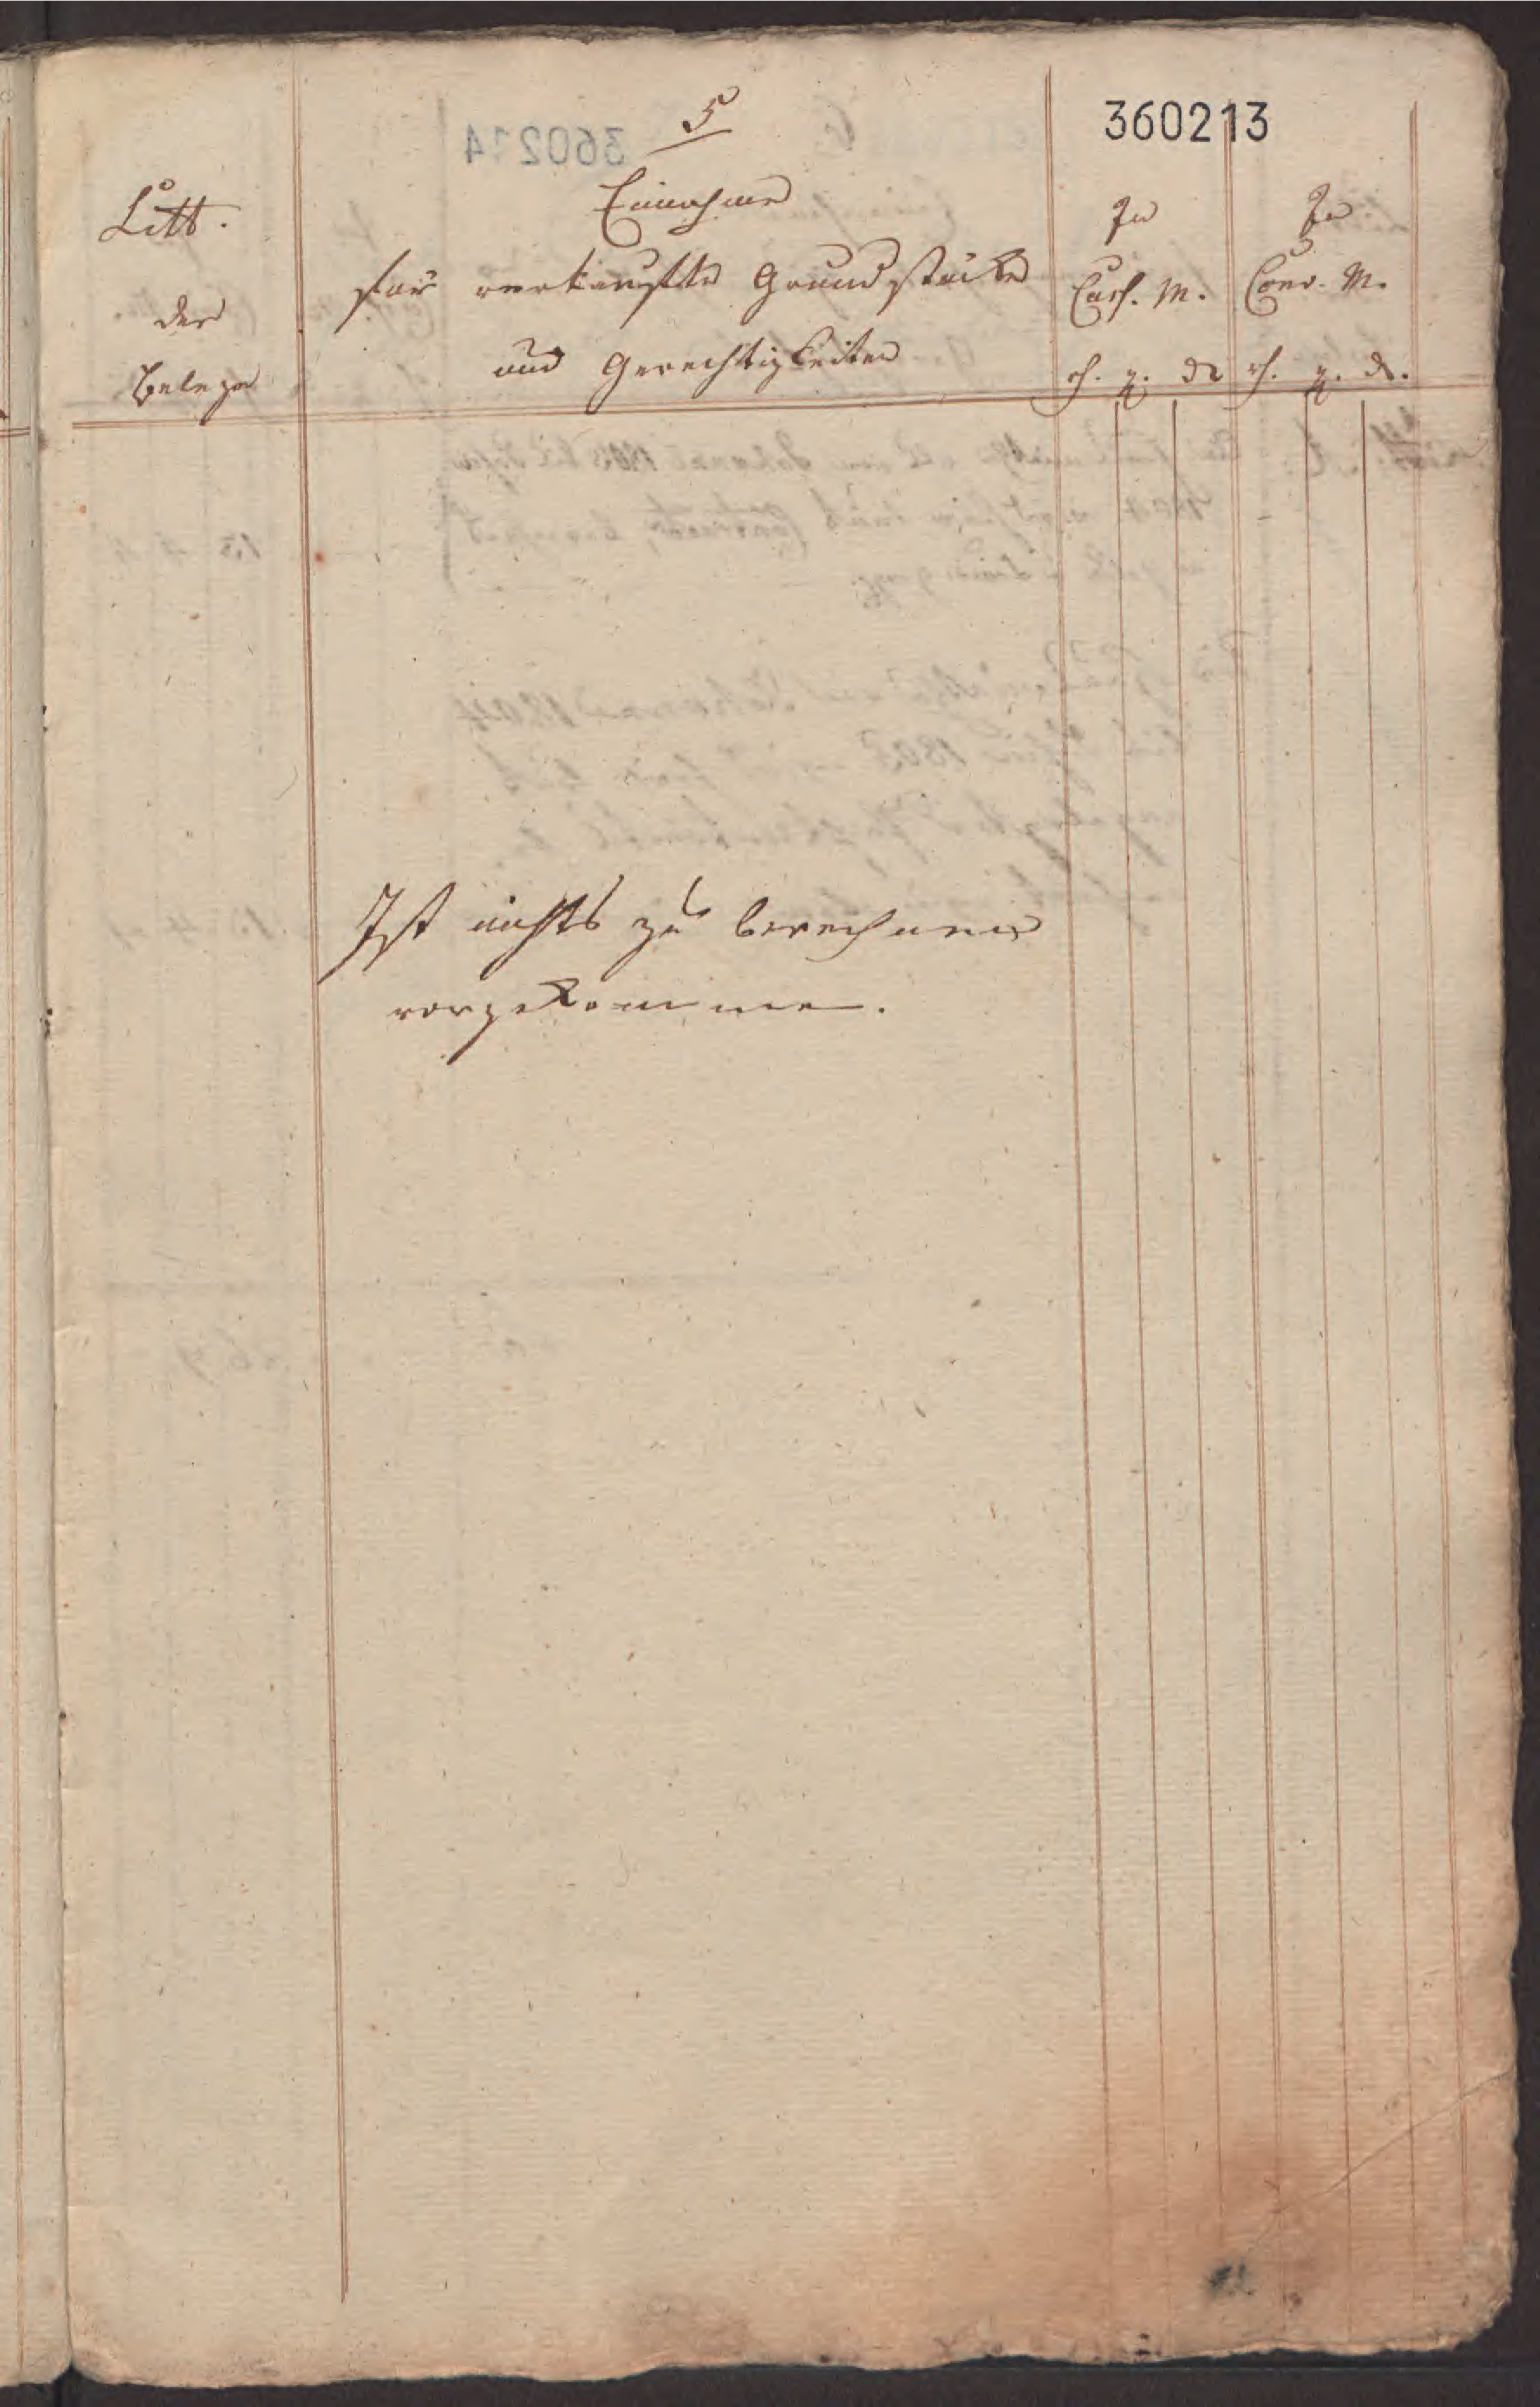 5
360213
Litt.
der
Belege
Einnahme
für verkaufte Grundstücke
und Gerechtigkeiten
In
Cass. M.
In
Conv. M.
rh. g. d. rh. g. d.
Ist nichts zu berechnen
vorgekommen.